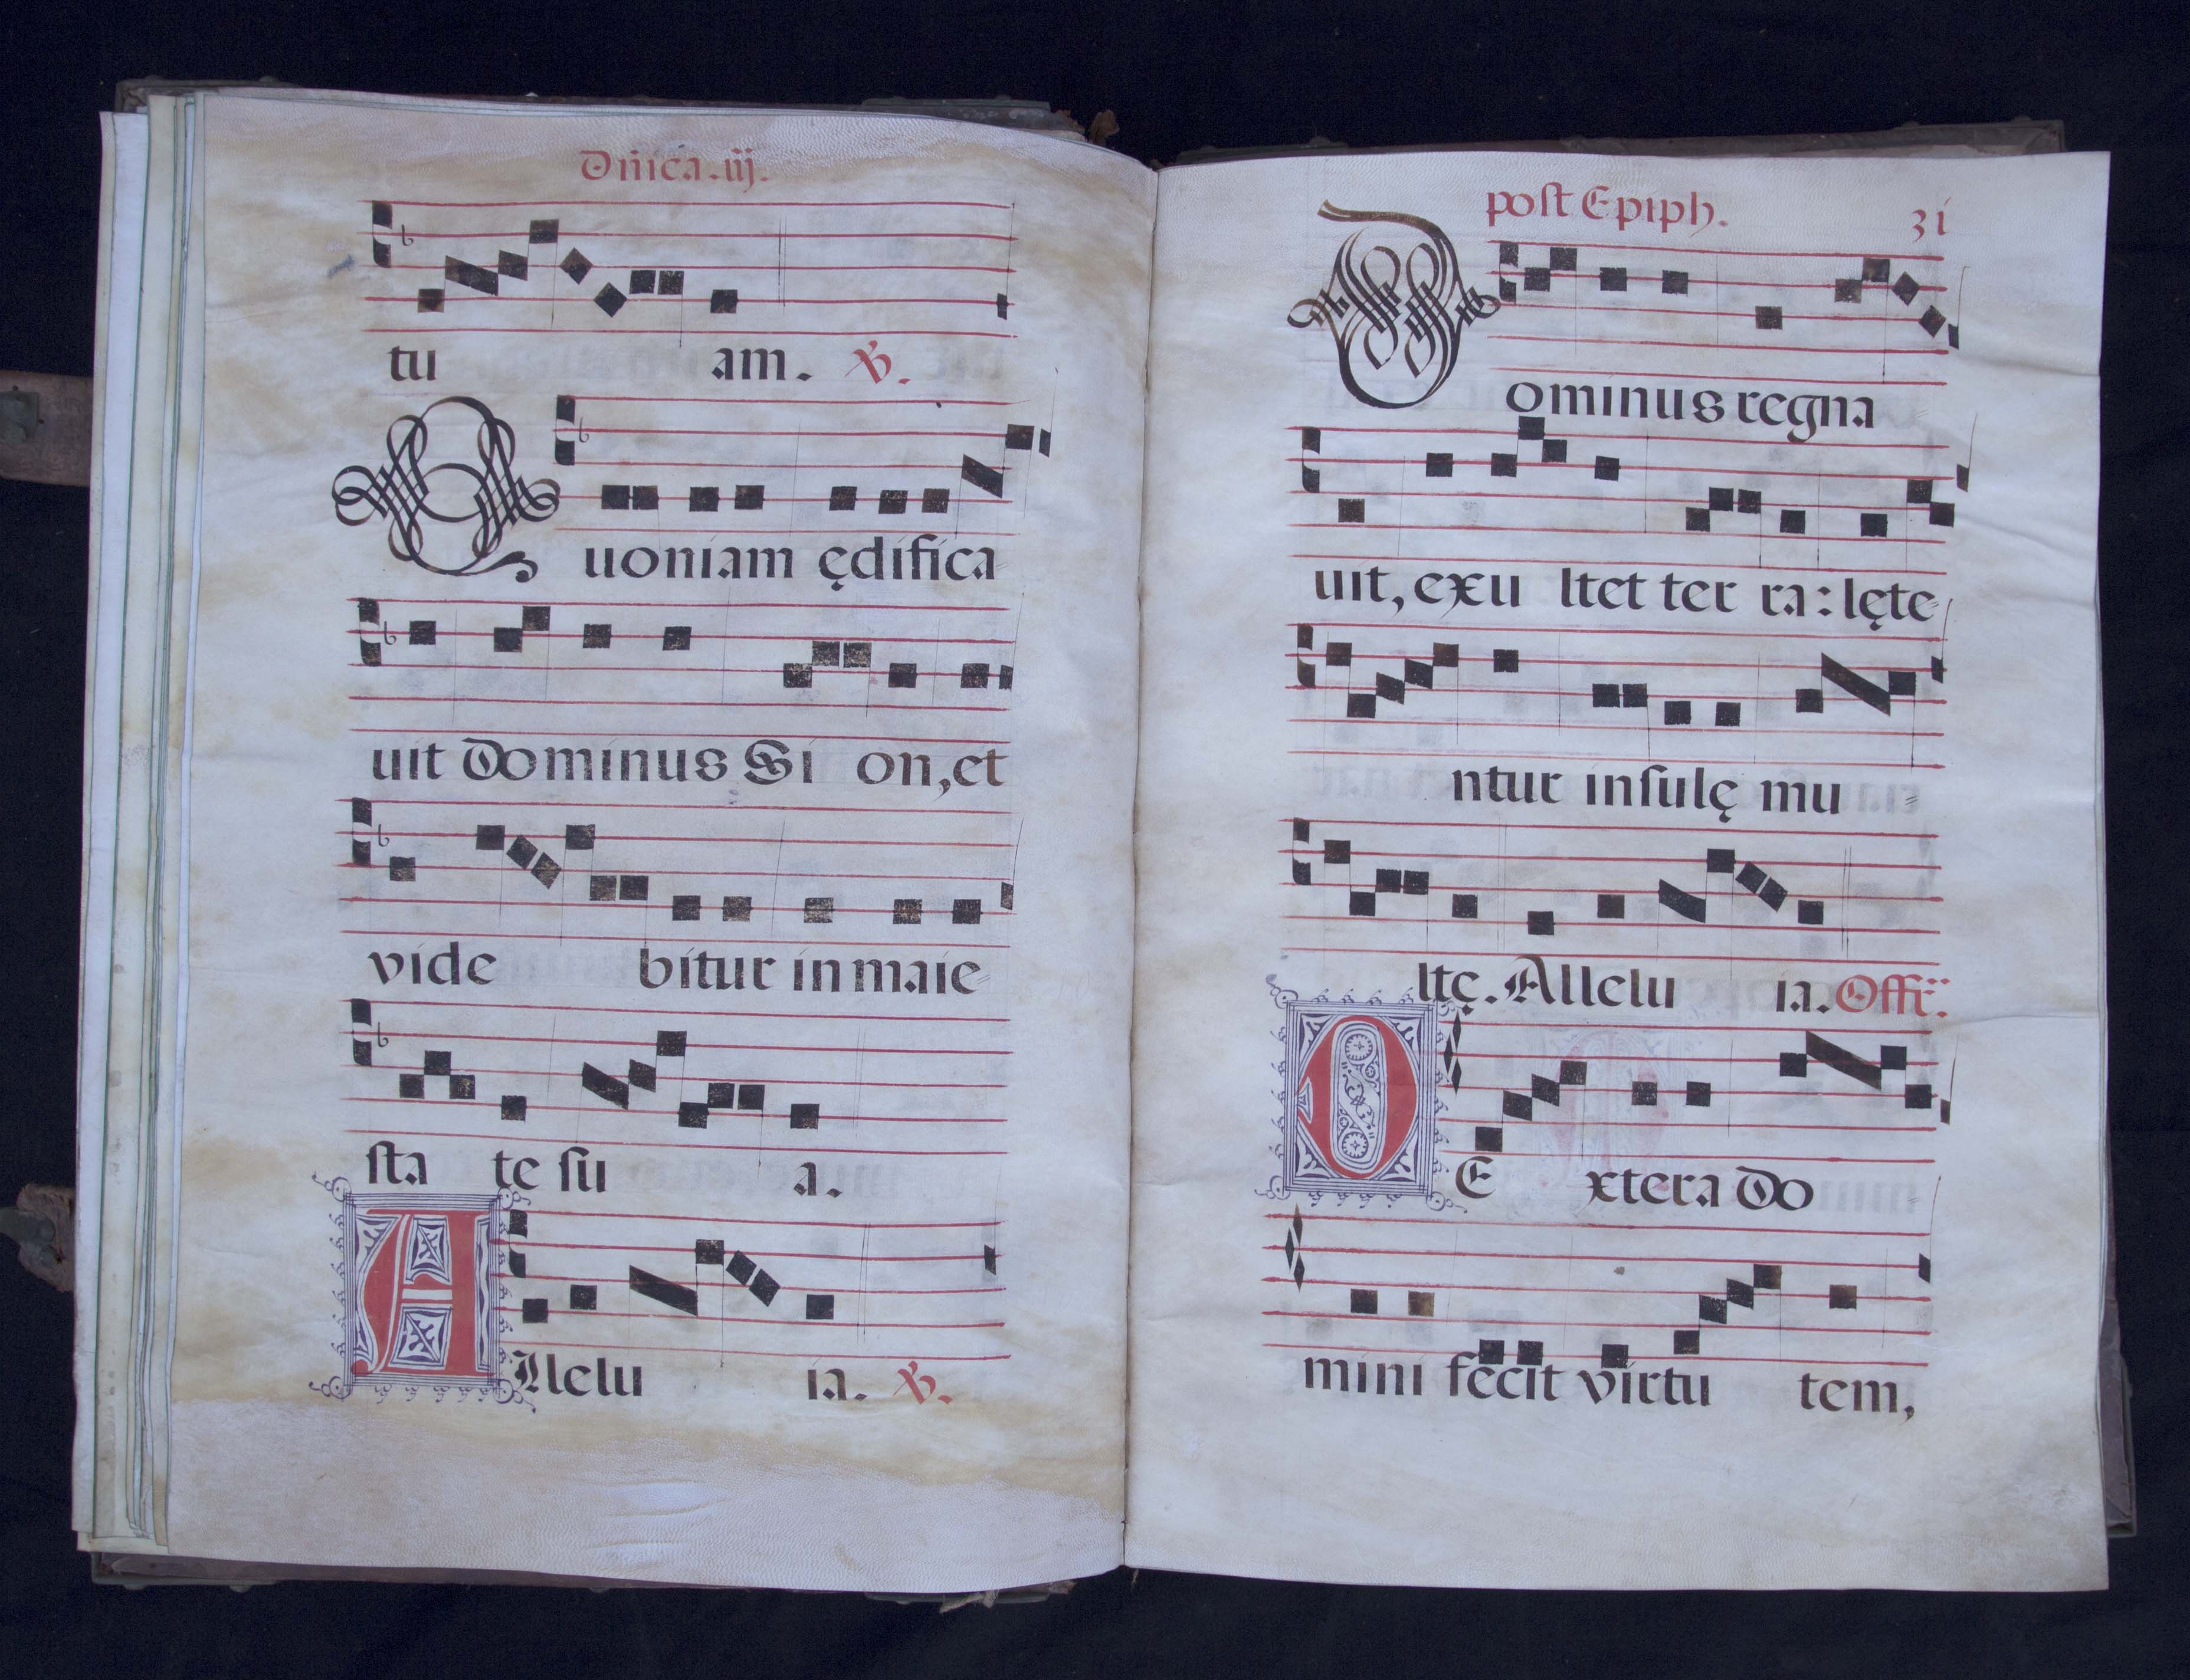 Dñica.iij.
tu am. ℣.
Quoniam ędifica
uit Dominus Si on, et
vide bitur in maie
sta te su a.
Allelu ia. ℣.
post Epiph. 31
Dominus regna
uit, exu ltet ter ra: lęte
ntur insulę mu
ltę. Allelu ia. Offr̃.
DE xtera Do
mini fecit virtu tem,